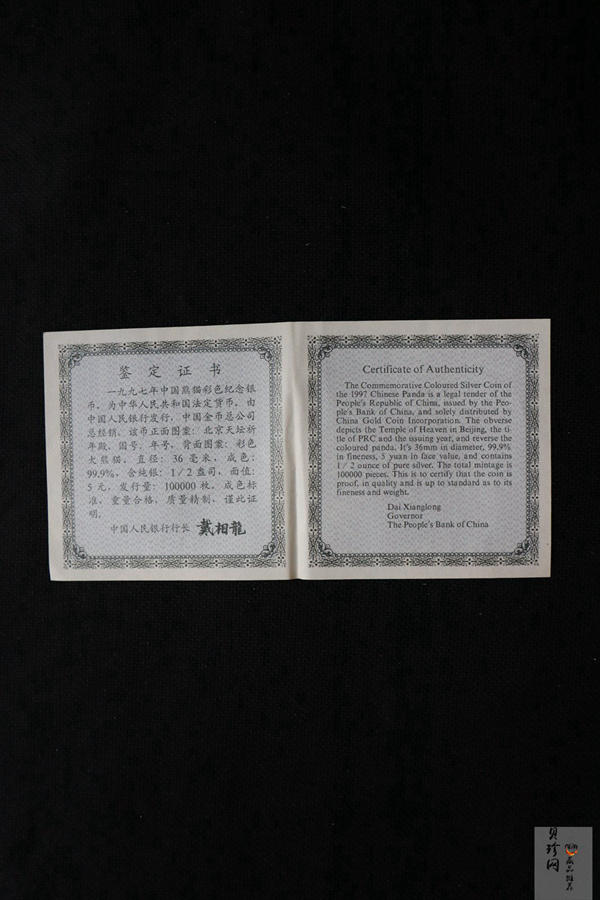 鉴定证书
一九九七年中国熊猫彩色纪念银
币，为中华人民共和国法定货币。由
中国人民银行发行，中国金币总公司
总经销。该币正面图案：北京天坛祈
年殿、国号、年号，背面图案：彩色
大熊猫。直径：36毫米，成色：
99.9%，含纯银：1/2盎司，面值：
5元，发行量：100000枚。成色标
准，重量合格，质量精制，谨此证
明。
中国人民银行行长 戴相龍
Certificate of Authenticity
The Commemorative Coloured Silver Coin of
the 1997 Chinese Panda is a legal tender of the
People's Republic of China, issued by the Peo-
ple's Bank of China, and solely distributed by
China Gold Coin Incorporation. The obverse
depicts the Temple of Heaven in Beijing, the ti-
tle of PRC and the issuing year, and reverse the
coloured panda. It's 36mm in diameter, 99.9%
in fineness, 5 yuan in face value, and contains
1/2 ounce of pure silver. The total mintage is
100000 pieces. This is to certify that the coin is
proof, in quality and is up to standard as to its
fineness and weight.
Dai Xianglong
Governor
The People's Bank of China
贝珍网
藏品推荐